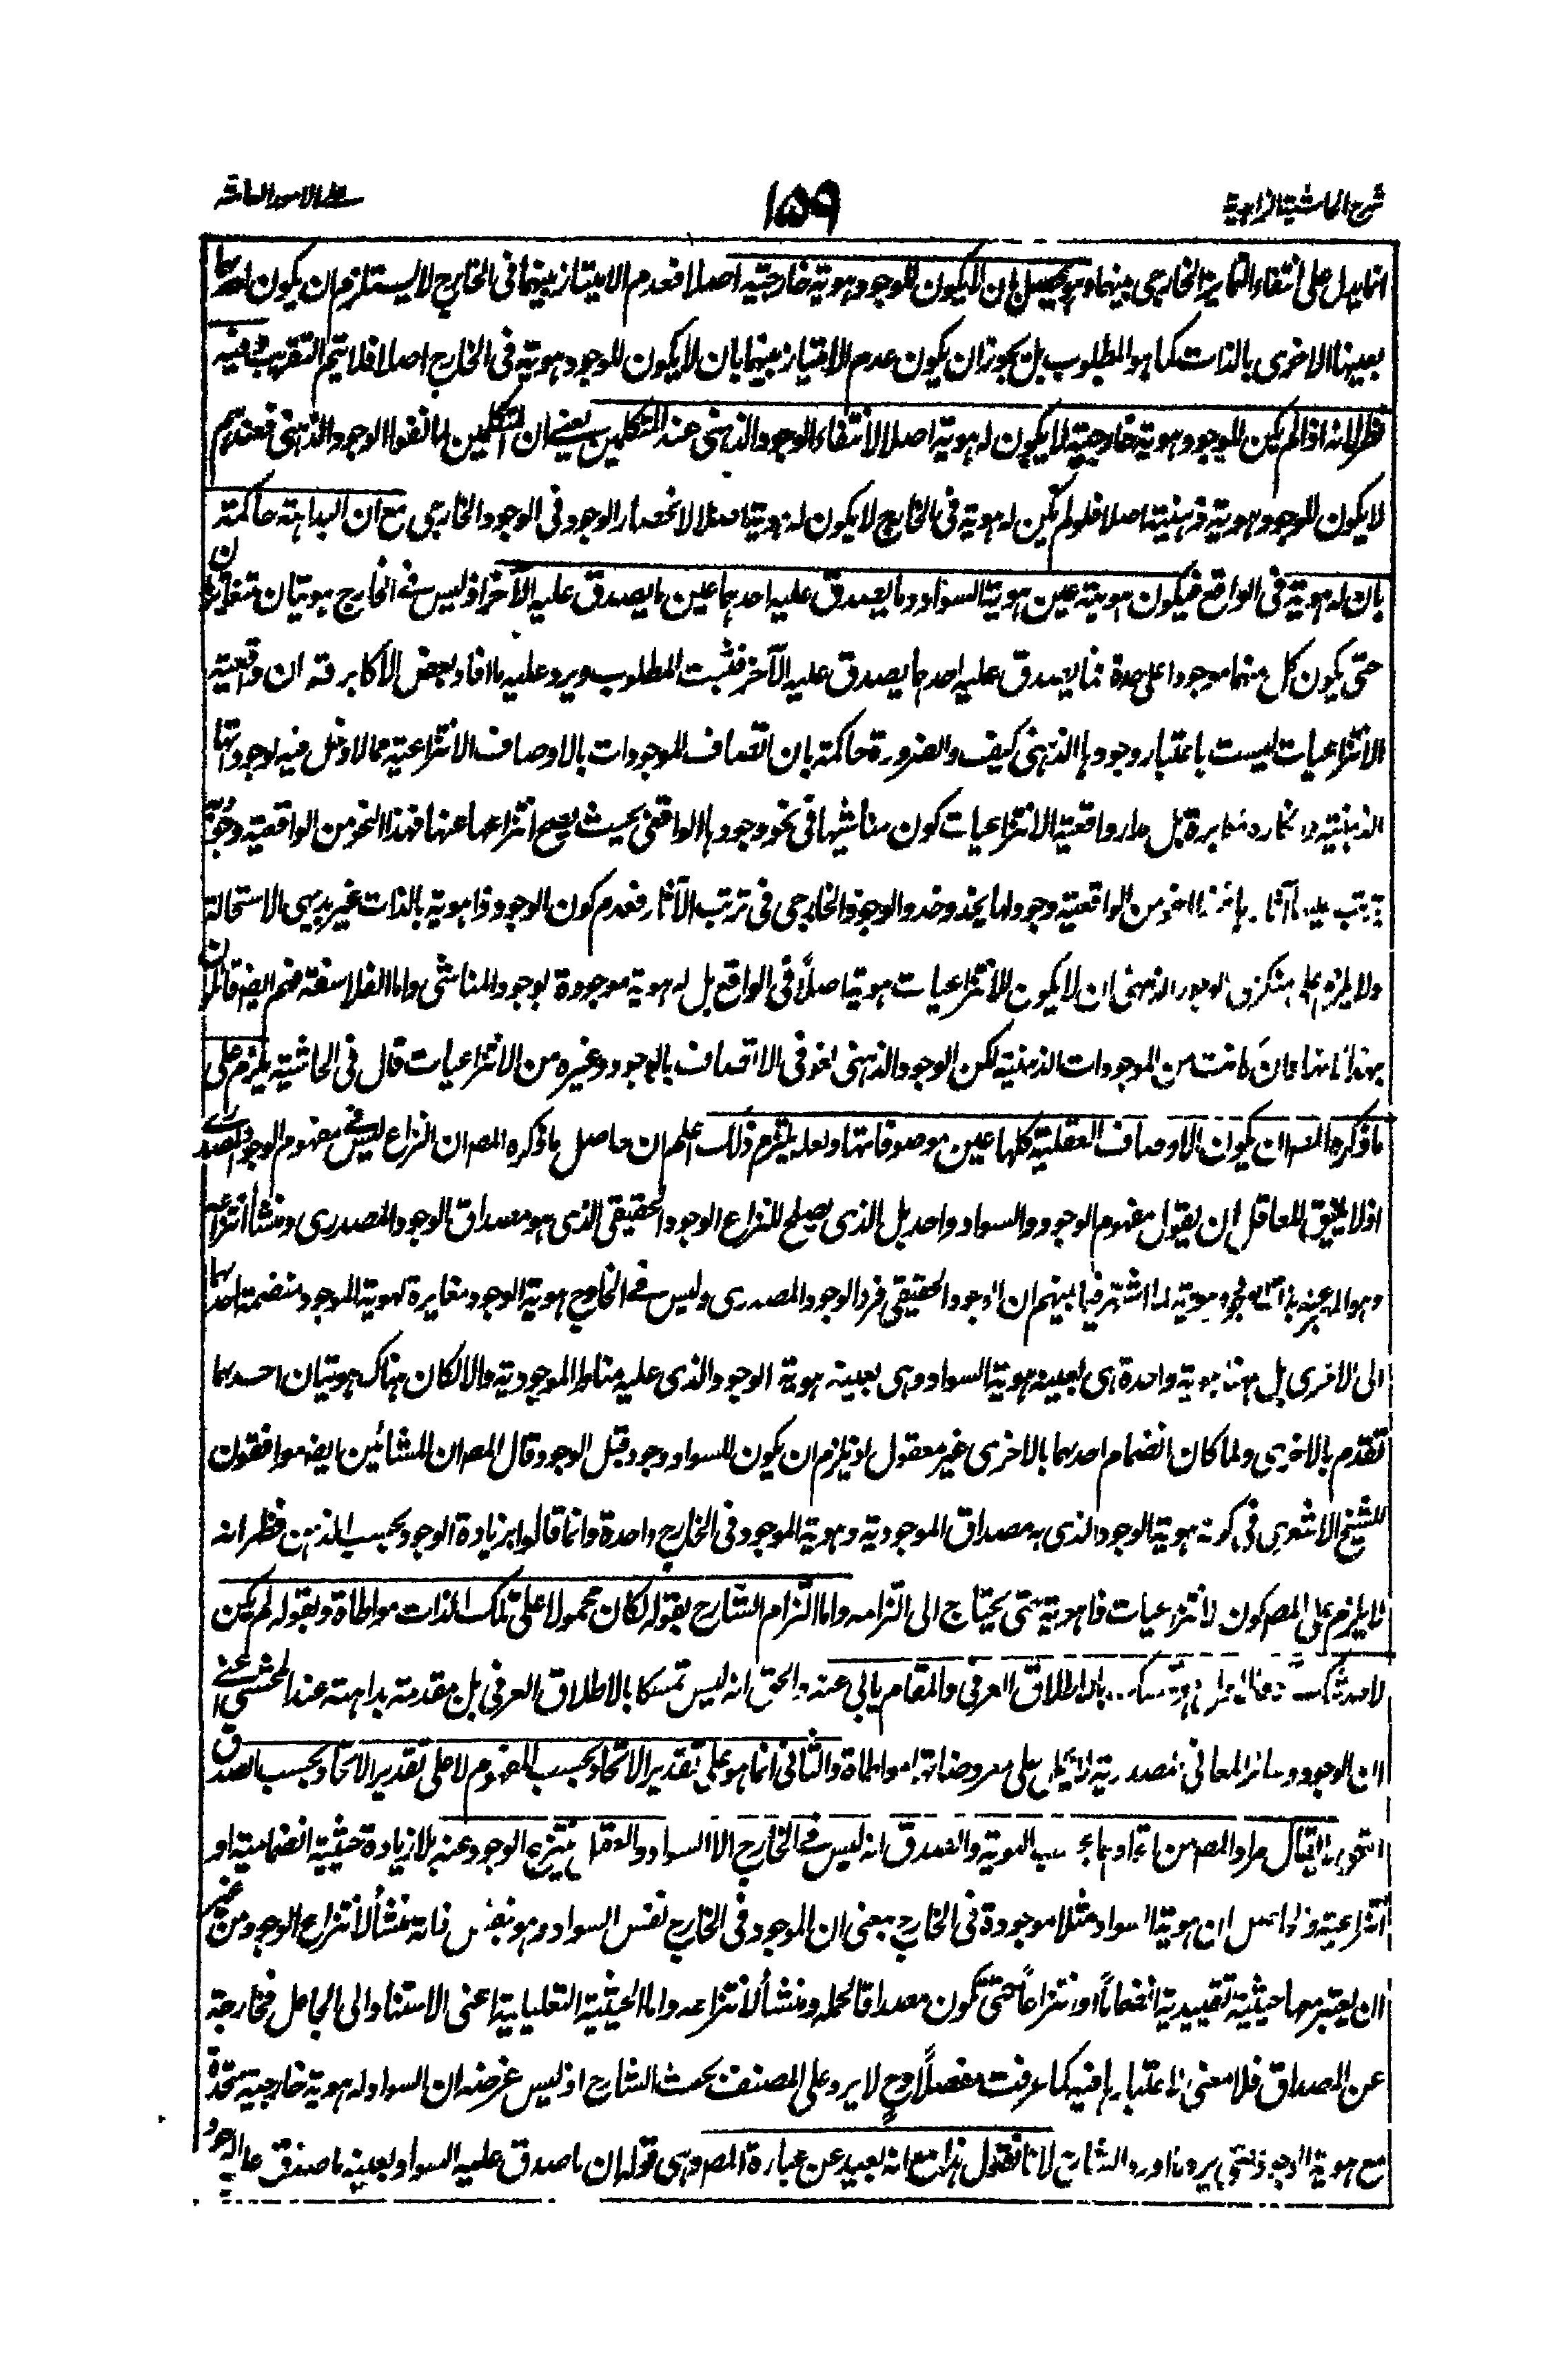 شرح الحاشية الزاهدية
١٥٩
على الامور العامة
انما يدل على انتفاء التمايز الخارجى بينهما وهو يحصل بان لا يكون للوجود هوية خارجية اصلا فعدم الامتياز بينهما فى الخارج لا يستلزم ان يكون احدهما
بعينها الاخرى بالذات كما هو المطلوب بل يجوز ان يكون عدم الامتياز بينهما بان لا يكون للوجود هوية فى الخارج اصلا فلا يتم التقريب وفيه
نظر لانه اذا لم يكن للوجود هوية خارجية لا يكون له هوية اصلا لانتفاء الوجود الذهنى عند المتكلمين يعنے ان المتكلمين لما نفوا الوجود الذهنى فعندهم
لا يكون للوجود هوية ذهنية اصلا فلو لم يكن له هوية فى الخارج لا يكون له هوية اصلا لانحصار الوجود فى الوجود الخارجى مع ان البداهة حاكمة
بان له هوية فى الواقع فيكون هويته عين هوية السواد وما يصدق عليه احدهما عين ما يصدق عليه الآخر اذ ليس فے الخارج هويتان متغايرتان
حتى يكون كل منهما موجودا على حدة فما يصدق عليه احدهما يصدق عليه الآخر فثبت المطلوب ويرد عليه ما افاد بعض الاكابر قد ان واقعية
الانتزاعيات ليست باعتبار وجودها الذهنى كيف والضرورة حاكمة بان اتصاف الموجودات بالاوصاف الانتزاعية مما لا دخل فيه لوجوداتها
الذهنية وانكاره مكابرة بل مدار واقعية الانتزاعيات كون مناشيها فى نحو وجودها الواقعى بحيث يصح انتزاعها عنها فهذا النحو من الواقعية وجود
يترتب عليه الآثار وهذا النحو من الواقعية وجود لها يحذو حذو الوجود الخارجى فى ترتب الآثار فعدم كون الوجود ذا هوية بالذات غير بديهى الاستحالة
ولا يلزم على منكرى الوجود الذهنى ان لا يكون للانتزاعيات هوية اصلًا فى الواقع بل له هوية موجودة بوجود المناشى واما الفلاسفة فهم ايضه قائلون
بهذا فانها وان كانت من الموجودات الذهنية لكن الوجود الذهنى لغو فى الاتصاف بالوجود وغيره من الانتزاعيات قال فى الحاشية يلزم على
ما ذكره المصه ان يكون الاوصاف العقلية كلها عين موصوفاتها ولعله يلتزم ذلك اعلم ان حاصل ما ذكره المصه ان النزاع ليس فے مفهوم الوجود المصدرے
اذ لا يليق للعاقل ان يقول مفهوم الوجود والسواد واحد بل الذى يصلح للنزاع الوجود الحقيقى الذى هو مصداق الوجود المصدرى ومنشأ انتزاعه
وهو المعبر عنه هوية لما اشتهر فيما بينهم ان الوجود الحقيقى فرد الوجود المصدرى وليس فے الخارج هوية الوجود مغايرة لهوية الموجود منضمة احدهما
الى الاخرى بل هنا هوية واحدة هى بعينه هوية السواد وهى بعينه هوية الوجود الذى عليه مناط الموجودية والا لكان هناك هويتان احدهما
تقدم بالاخرى ولما كان انضمام احدهما بالاخرى غير معقول اذ يلزم ان يكون للسواد وجود قبل الوجود قال المصه ان المشائين ايضه موافقون
للشيخ الاشعرى فى كونه هوية الوجود الذى به مصداق الموجودية وهوية الموجود فى الخارج واحدة وانما قالوا بزيادة الوجود بحسب الذهن فظهر انه
لا يلزم على المصه كون الانتزاعيات ذا هوية حتى يحتاج الى التزامه واما التزام الشارح بقوله لكان محمولا على تلك الذات مواطاة وبقوله لم يكن
لاحد شك بالاطلاق العرفى والمقام يابى عنه والحق انه ليس تمسكا بالاطلاق العرفى بل مقدمة بداهته عند المحشى اعنے
ان الوجود وسائر المعانى المصدرية لا يحمل على معروضاتها مواطاة والثانى انما هو على تقدير الاتحاد بحسب المفهوم لا على تقدير الاتحاد بحسب الصدق
انتهى لا يقال مراد المصه من اتحادهما بحسب الهوية والصدق انه ليس فے الخارج الا السواد والعقل ينتزع الوجود عنه بلا زيادة حيثية انضمامية او
انتزاعية والحاصل ان هوية السواد مثلا موجودة فى الخارج بمعنى ان الموجود فى الخارج نفس السواد وهو بنفس ذاته منشأ لانتزاع الوجود من غير
ان يعتبر معها حيثية تقييدية انضماماً او انتزاعاً حتى تكون مصداقا لحمله ومنشأ لانتزاعه واما الحيثية التعليلية اعنى الاستناد الى الجاعل فخارجة
عن المصداق فلا معنى لاعتبارها فيه كما عرفت مفصلًا وح لا يرد على المصنف بحث الشارح اذ ليس غرضه ان السواد له هوية خارجية متحدة
مع هوية الوجود حتى يرد ما اورد الشارح لانا نقول هذا مع انه بعيد عن عبارة المصه وهى قوله ان ما صدق عليه السواد بعينه ما صدق عليه الوجود